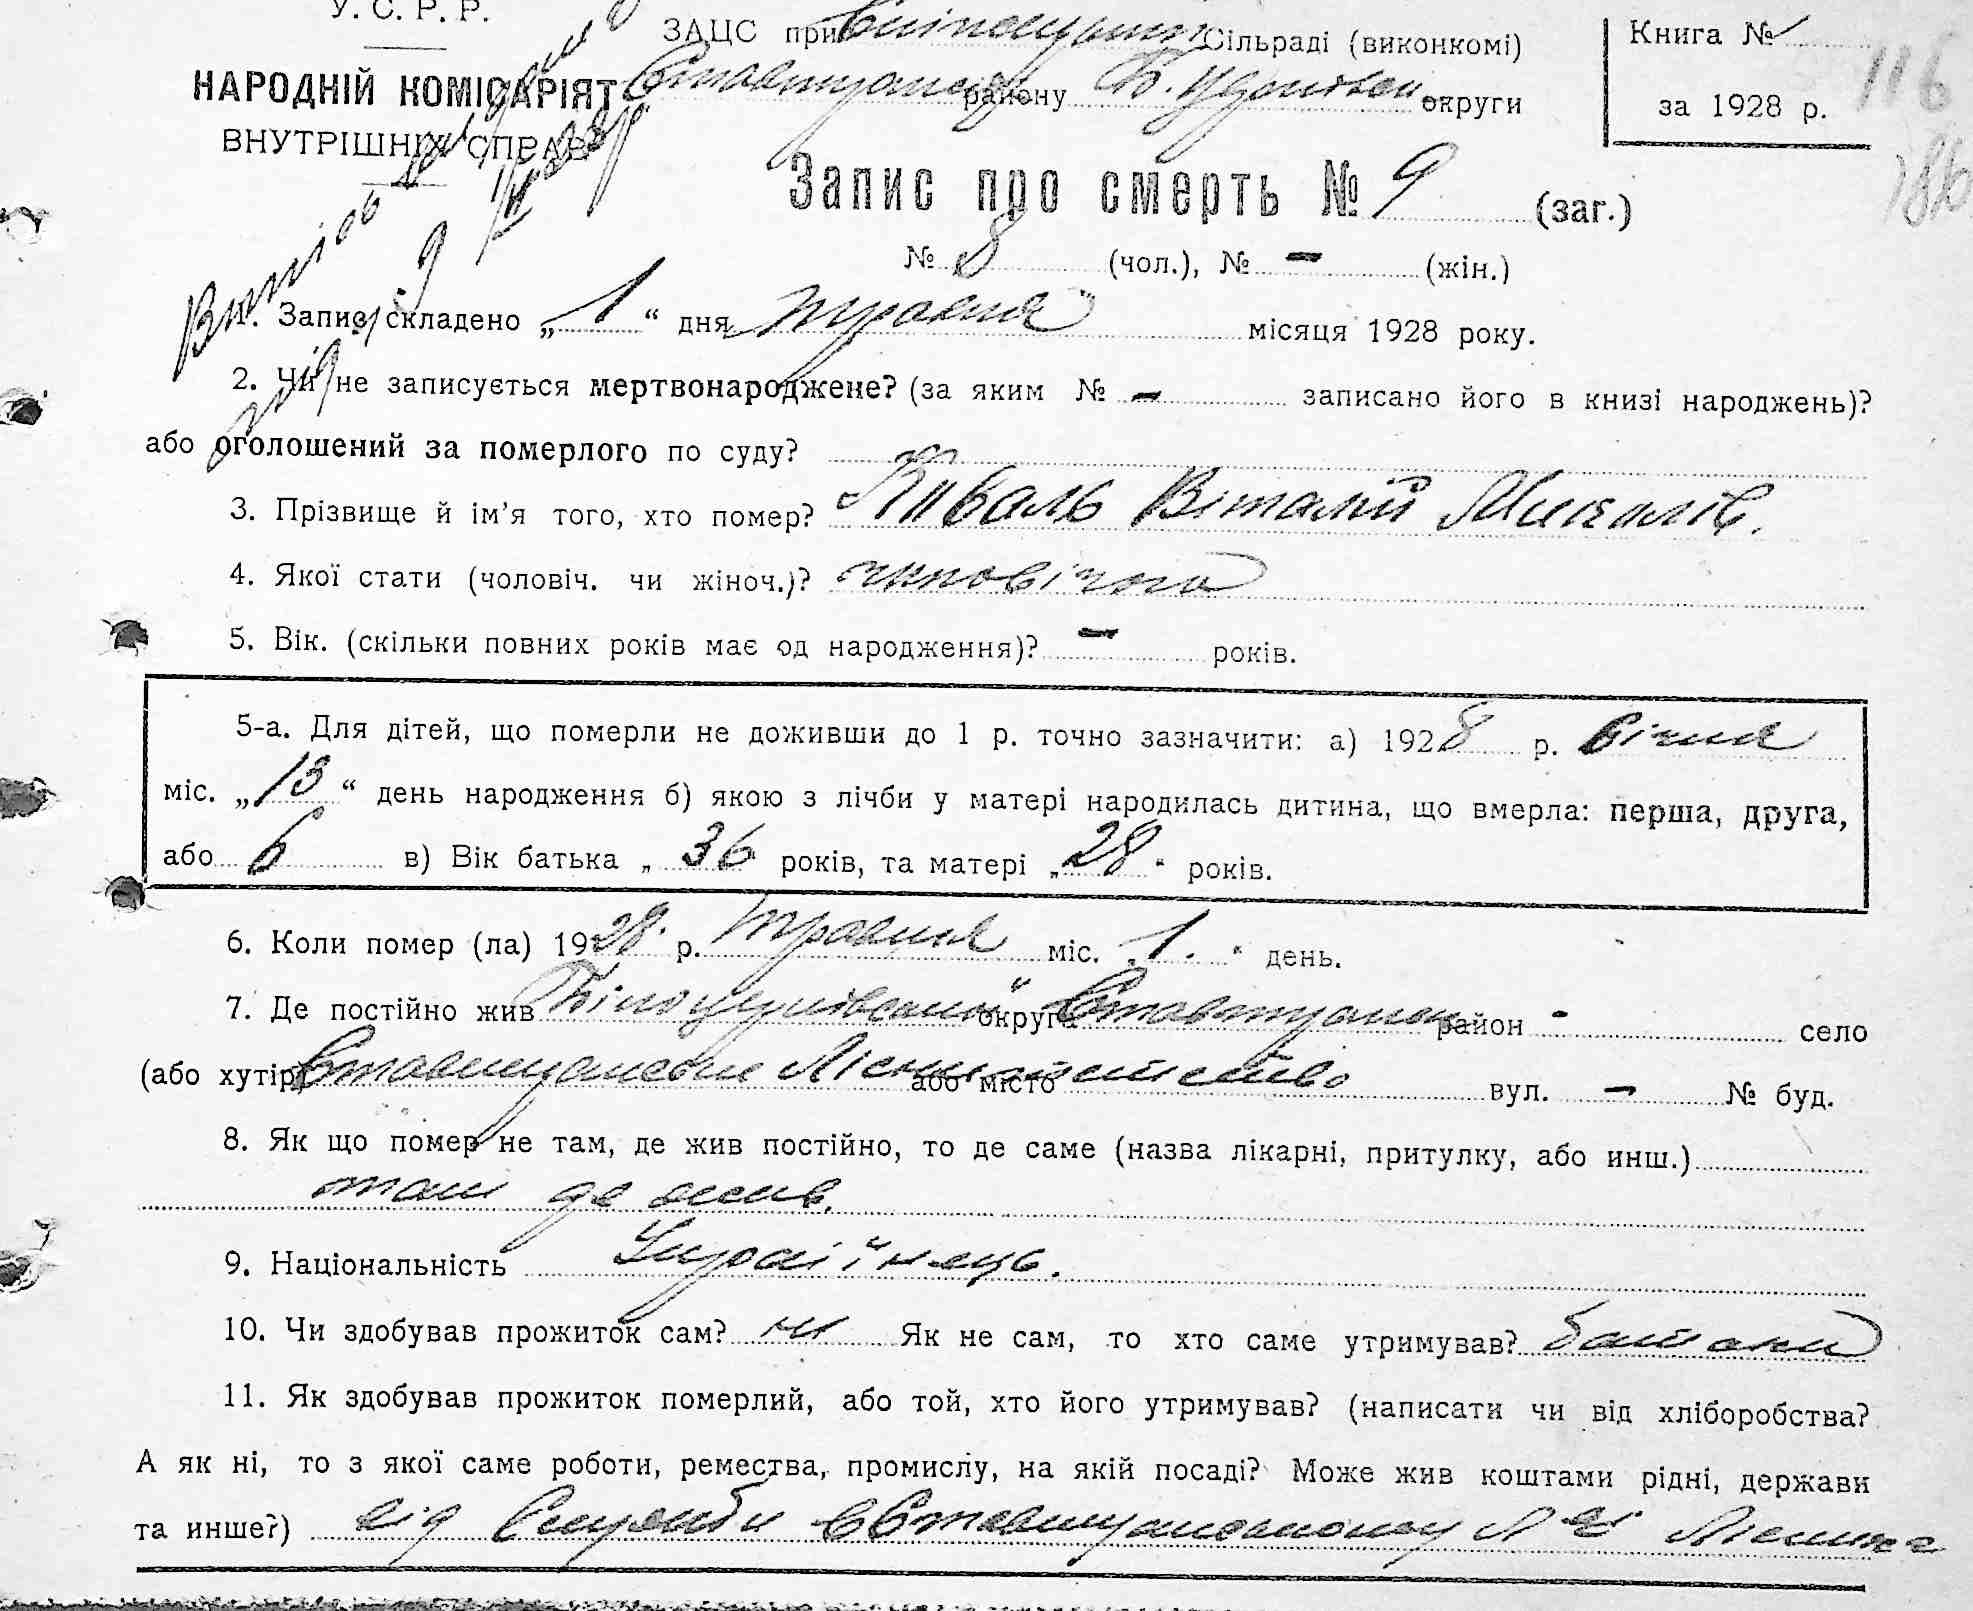 У. С. Р. Р.
НАРОДНІЙ КОМІСАРІЯТ
ВНУТРІШНІХ СПРАВ
ЗАЦС при Сільраді (виконкомі)
району Б. Церківськ округи
Книга №
за 1928 р.
116
186
Запис про смерть № 9 (заг.)
№ 8 (чол.), № - (жін.)
1. Запис складено „ 1 “ дня травня місяця 1928 року.
2. Чи не записується мертвонароджене? (за яким № - записано його в книзі народжень)?
або оголошений за померлого по суду?
3. Прізвище й ім’я того, хто помер? Коваль Віталій Михалів.
4. Якої стати (чоловіч. чи жіноч.)? чоловічого
5. Вік. (скільки повних років має од народження)? - років.
5-а. Для дітей, що померли не доживши до 1 р. точно зазначити: а) 1928 р. січня
міс. „ 13 “ день народження б) якою з лічби у матері народилась дитина, що вмерла: перша, друга,
або 6 в) Вік батька „ 36 років, та матері „ 28 “ років.
6. Коли помер (ла) 1928 р. травня міс. „ 1. “ день.
7. Де постійно жив Білоцерківської округа Ставищанськ район - село
(або хутір) Ставищанське Лісництво або місто вул. - № буд.
8. Як що помер не там, де жив постійно, то де саме (назва лікарні, притулку, або инш.)
там де жив.
9. Національність Україінець.
10. Чи здобував прожиток сам? ні Як не сам, то хто саме утримував? батьки
11. Як здобував прожиток померлий, або той, хто його утримував? (написати чи від хліборобства?
А як ні, то з якої саме роботи, ремества, промислу, на якій посаді? Може жив коштами рідні, держави
та инше?) від Служби в Ставищанському